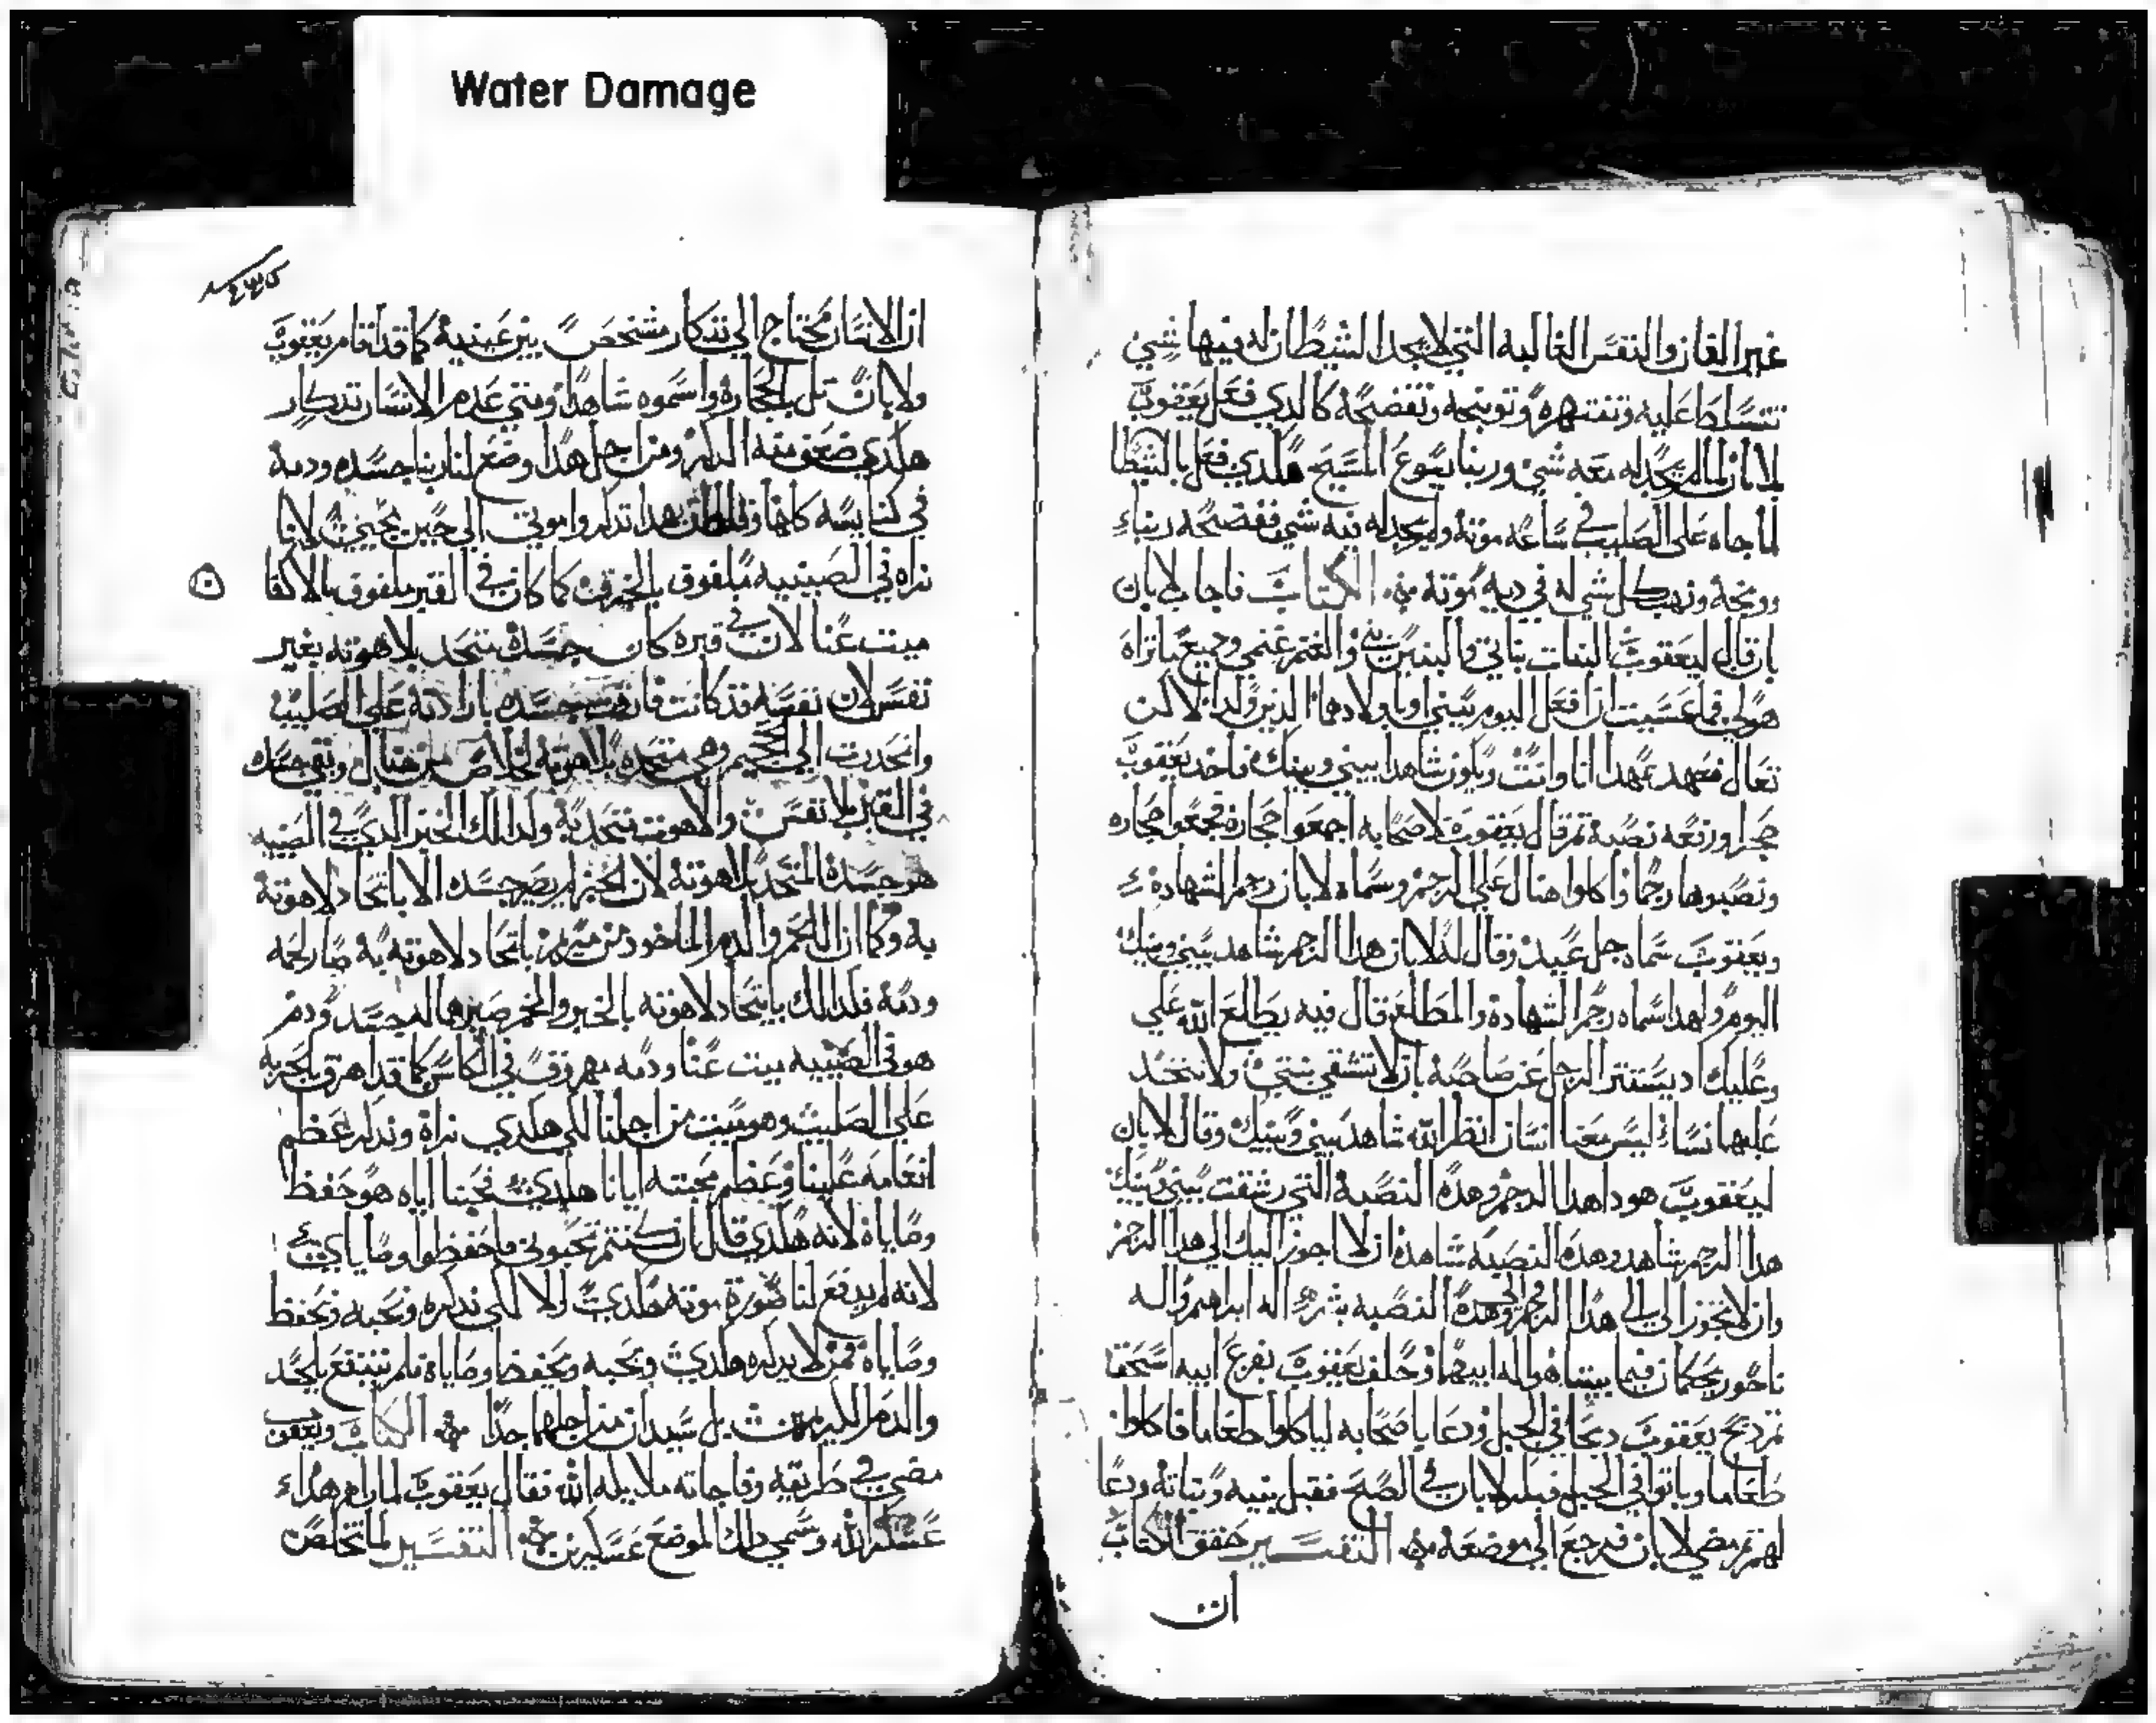 Water Damage
غير الفان والنفس الغالبه التي لا يجد الشيطان له فيها شي
تتسلط عليه وتنتهره وتوبخه وتفضحه كالذي فعل يعقوب
لابان لما لم يجد له معه شي وربنا يسوع المسيح هكدي فعل بالشيطا
لما جاه على الصليب في ساعة موته ولم يجد له فيه شي ففضحه ربناء
ووبخه ونهب كل شي له في ديه موته الكتاب فاجا لابان
بان قال ليعقوب البنات بناتي والبنين بني والغنم غنمي وجميع ما تراه
هو لي فما عسيت ان افعل اليوم ببنتي او باولادهما الدين ولدا لاكن
تعال نعهد عهدا انا وانت ويكون شاهدا بيني وبينك فاخد يعقوب
حجرا ورفعه نصبة تم قال يعقوب لاصحابه اجمعوا حجاره فجمعوا حجاره
ونصبوها رجما واكلوا هناك على الرجم وسماه لابان رجم الشهادة
ويعقوب سماه جل عيد وقال له لابان هدا الرجم شاهد بيني وبينك
اليوم ولهدا سماه رجم الشهادة والمطلع قال فيه يطلع الله علي
وعليك اد يستتر الرجل عن صاحبه بان لا تشقي بنتي ولا تتخد
عليها نساء ليس معنا انسان انظر الله شاهد بيني وبينك وقال لابان
ليعقوب هودا هدا الرجم وهده النصبة التي رشقت بيني وبينك
هدا الرجم شاهد وهده النصبة شاهده ان لا اجوز اليك الى هدا الرجم
وان لا تجوز الي الى هدا الرجم وهده النصبه بشر اله ابراهيم واله
ناحور يحكمان فيما بيننا هو اله ابيهما وحلف يعقوب بفزع ابيه اسحق
تم دبح يعقوب دبحا في الجبل ودعا باصحابه لياكلوا طعاما فاكلوا
طعاما وباتوا في الجبل فبكر لابان في الصبح فقبل بنيه وبناته ودعا
لهم تم مضى لابان فرجع الى موضعه التفسير حقق الكتاب
ان
ان الانسان محتاج الى تدكار مشخص بين عينيه كما قد اقام يعقوب
ولابان تل بالحجاره واسموه شاهدا ومتى عدم الانسان تدكار
هكدي ضعف منه الدكر ومن اجل هدا وضع لنا ربنا جسده ودمه
في كنايسه كاهنا بهدا تدكروا موتى الى حين مجيي لاننا
نراه في الصينيه ملفوف بالخرق كما كان في القبر ملفوف بالاكفا
ميت عنا لان في قبره كان جسده متحد بلاهوته بغير
نفس لان نفسه قد كانت فارقت جسده بارادته على الصليب
وانحدرت الى الجحيم وهي متحده بلاهوته لخلاص من هناك وبقي جسده
في القبر بلا نفس والاهوت متحد به ولدلك الخبز الدي في الصينيه
هو جسده المتحد بلاهوته لان الخبز لم يصر جسده الا باتحاد لاهوته
به وكما ان اللحم والدم الماخود من مريم باتحاد لاهوته به صار لحمه
ودمه فلدلك باتحاد لاهوته بالخبز والخمر صيرها له جسد ودم
هو في الصينيه ميت عنا ودمه مهروق في الكاس كما قد اهرق بالحربه
على الصليب وهو ميت من اجلنا لكي هكدي نراه وندكر عظم
انعامه علينا وعظم محبته ايانا هكدي فحبنا اياه هو حفظ
وصاياه لانه هكدي قال ان كنتم تحبوني فاحفظوا وصاياي
لانه لم يدفع لنا صورة موته هكدي الا لكي ندكره ونحبه ونحفظ
وصاياه فمن لا يدكره هكدي ويحبه ويحفظ وصاياه فلم ينتفع بالجسد
والدم الكريمين بل سيدان من اجلهما جدا الكتاب ويعقوب
مضى في طريقه وفاجاته ملايكه الله فقال يعقوب لما راهم هداء
عسكر الله وسمى دلك الموضع عسكرين التفسير لما تخلص